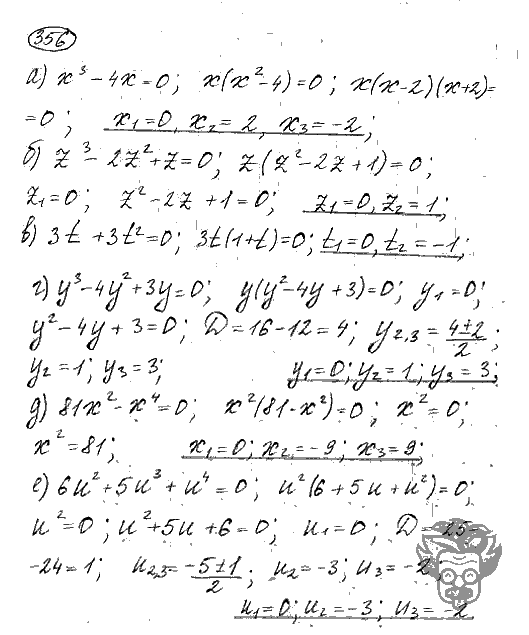 356
а) x³ - 4x = 0; x(x² - 4) = 0; x(x-2)(x+2) =
= 0; x₁ = 0, x₂ = 2, x₃ = -2;
б) z³ - 2z² + z = 0; z(z² - 2z + 1) = 0;
z₁ = 0; z² - 2z + 1 = 0; z₁ = 0, z₂ = 1;
в) 3t + 3t² = 0; 3t(1+t) = 0; t₁ = 0, t₂ = -1;
г) y³ - 4y² + 3y = 0; y(y² - 4y + 3) = 0; y₁ = 0;
y² - 4y + 3 = 0; D = 16 - 12 = 4; y₂,₃ = (4±2)/2;
y₂ = 1; y₃ = 3; y₁ = 0; y₂ = 1; y₃ = 3;
д) 81x² - x⁴ = 0; x²(81 - x²) = 0; x² = 0;
x² = 81; x₁ = 0; x₂ = -9; x₃ = 9;
е) 6u² + 5u³ + u⁴ = 0; u²(6 + 5u + u²) = 0;
u² = 0; u² + 5u + 6 = 0; u₁ = 0; D = 25 -
- 24 = 1; u₂,₃ = (-5±1)/2; u₂ = -3; u₃ = -2;
u₁ = 0; u₂ = -3; u₃ = -2